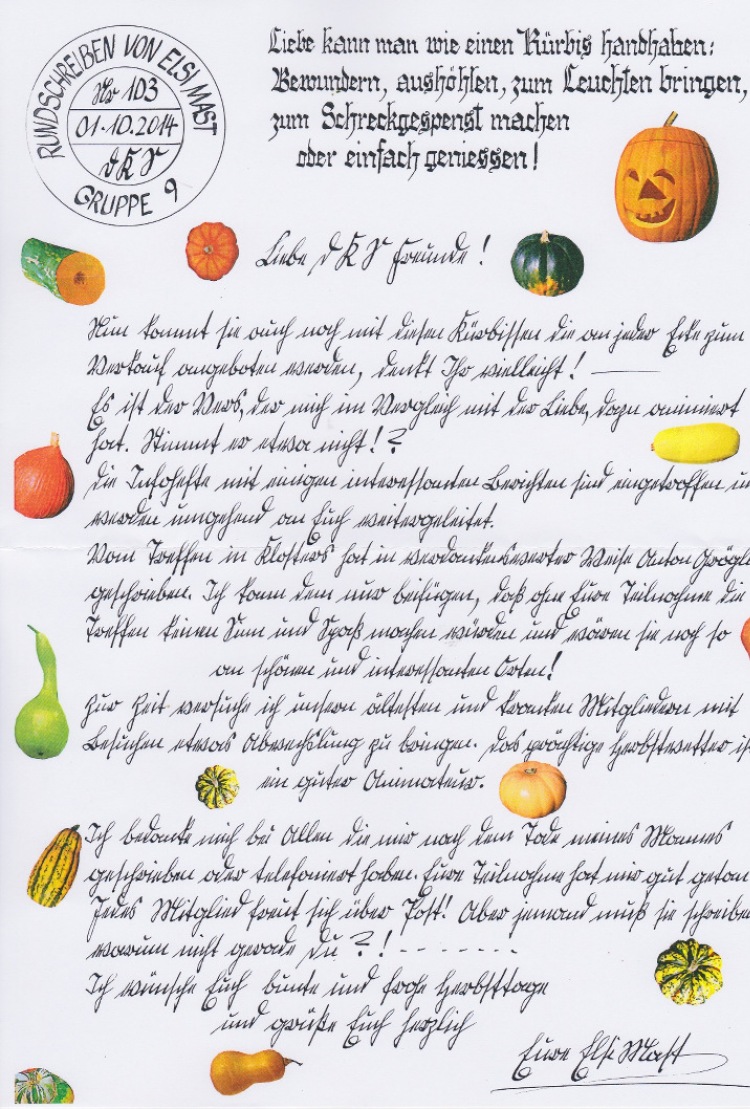 RUNDSCHREIBEN VON ELSI MAST
Nr 103
01.10.2014
dKS
GRUPPE 9
Liebe kann man wie einen Kürbis handhaben:
Bewundern, aushöhlen, zum Leuchten bringen,
zum Schreckgespenst machen
oder einfach geniessen!
Liebe dKS Freunde!
Nun kommt sie auch noch mit diesen Kürbissen die an jeder Ecke zum
Verkauf angeboten werden, denkt Ihr vielleicht! —
Es ist der Vers, der mich im Vergleich mit der Liebe, dazu animiert
hat. Stimmt er etwa nicht!?
Die Infohefte mit einigen interessanten Berichten sind eingetroffen un
werden umgehend an Euch weitergeleitet.
Vom Treffen in Klosters hat in verdankenswerter Weise Anton
geschrieben. Ich kann dem nur beifügen, daß ohne Eure Teilnahme die
Treffen keinen Sinn und Spaß machen würden und wären sie noch so
an schönen und interessanten Orten!
Zur Zeit versuche ich unsern ältesten und kranken Mitgliedern mit
Besuchen etwas Abwechslung zu bringen. Das prächtige Herbstwetter is
ein guter Animateur.
Ich bedanke mich bei Allen die mir nach dem Tode meines Mannes
geschrieben oder telefoniert haben. Eure Teilnahme hat mir gut getan
Jedes Mitglied freut sich über Post! Aber jemand muß sie schreiben
warum nicht gerade Du?! - - - - - - -
Ich wünsche Euch bunte und frohe Herbsttage
und grüße Euch herzlich
Eure Elsi Mast